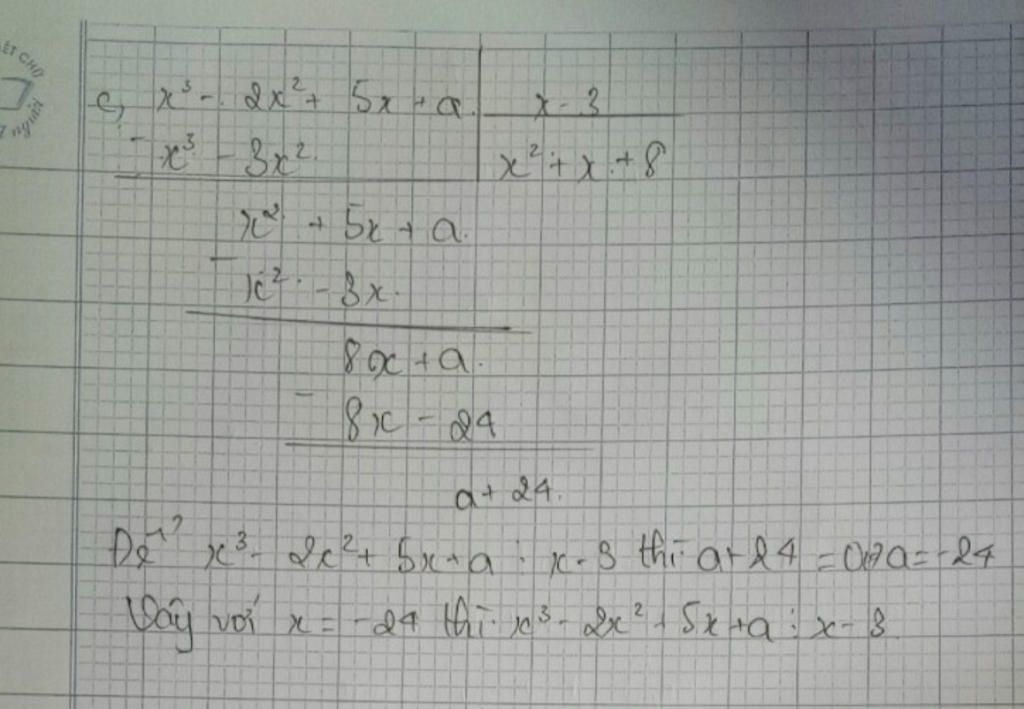 ẾT CHỮ
người
c, x³ - 2x² + 5x + a | x - 3
- x³ - 3x² | x² + x + 8
x² + 5x + a
- x² - 3x
8x + a
- 8x - 24
a + 24
Để x³ - 2x² + 5x + a ⋮ x - 3 thì a + 24 = 0 ⇔ a = -24
Vậy với x = -24 thì x³ - 2x² + 5x + a ⋮ x - 3